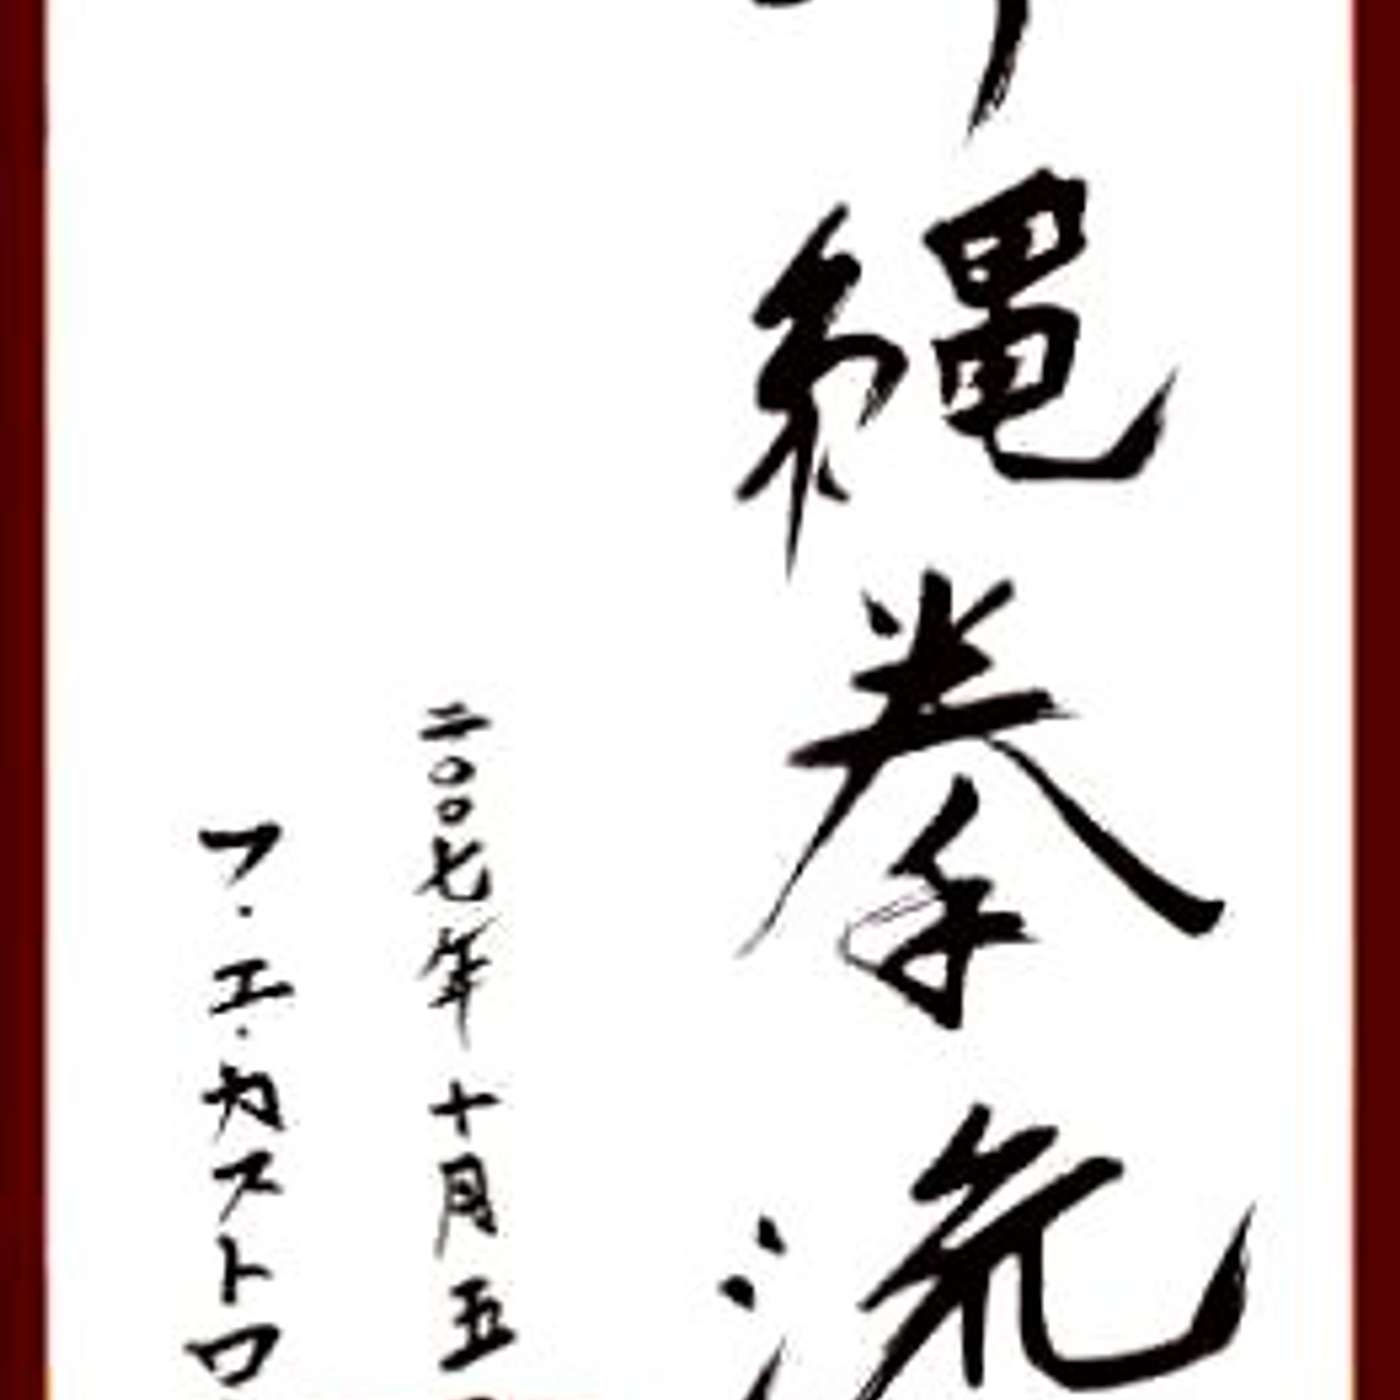 縄拳流
二〇〇七年十月五
フ・エ・カストロ